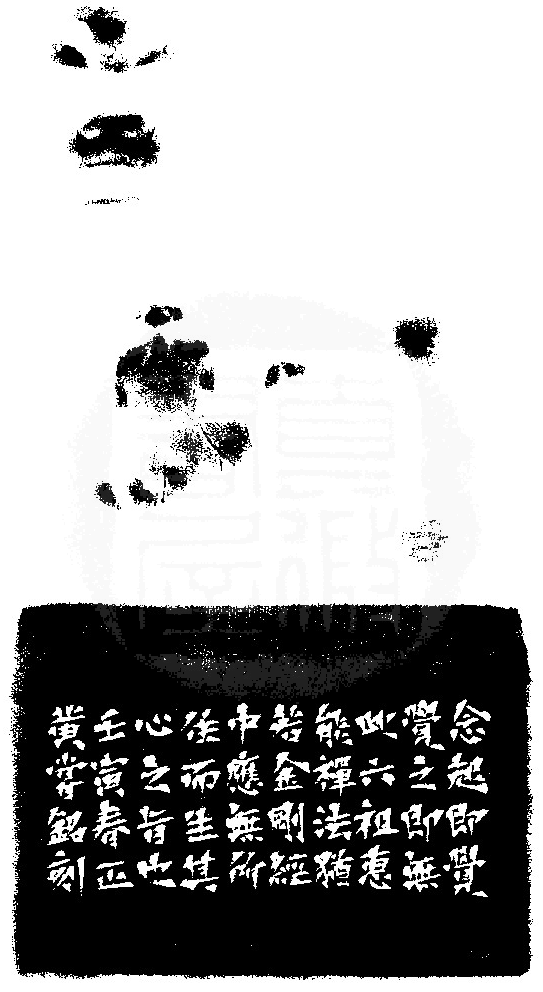 念起即覺
覺之即無
此六祖惠
能禪法猶
若金剛經
中應無所
而生其
心之旨也
壬寅春正
黃嘗銘刻